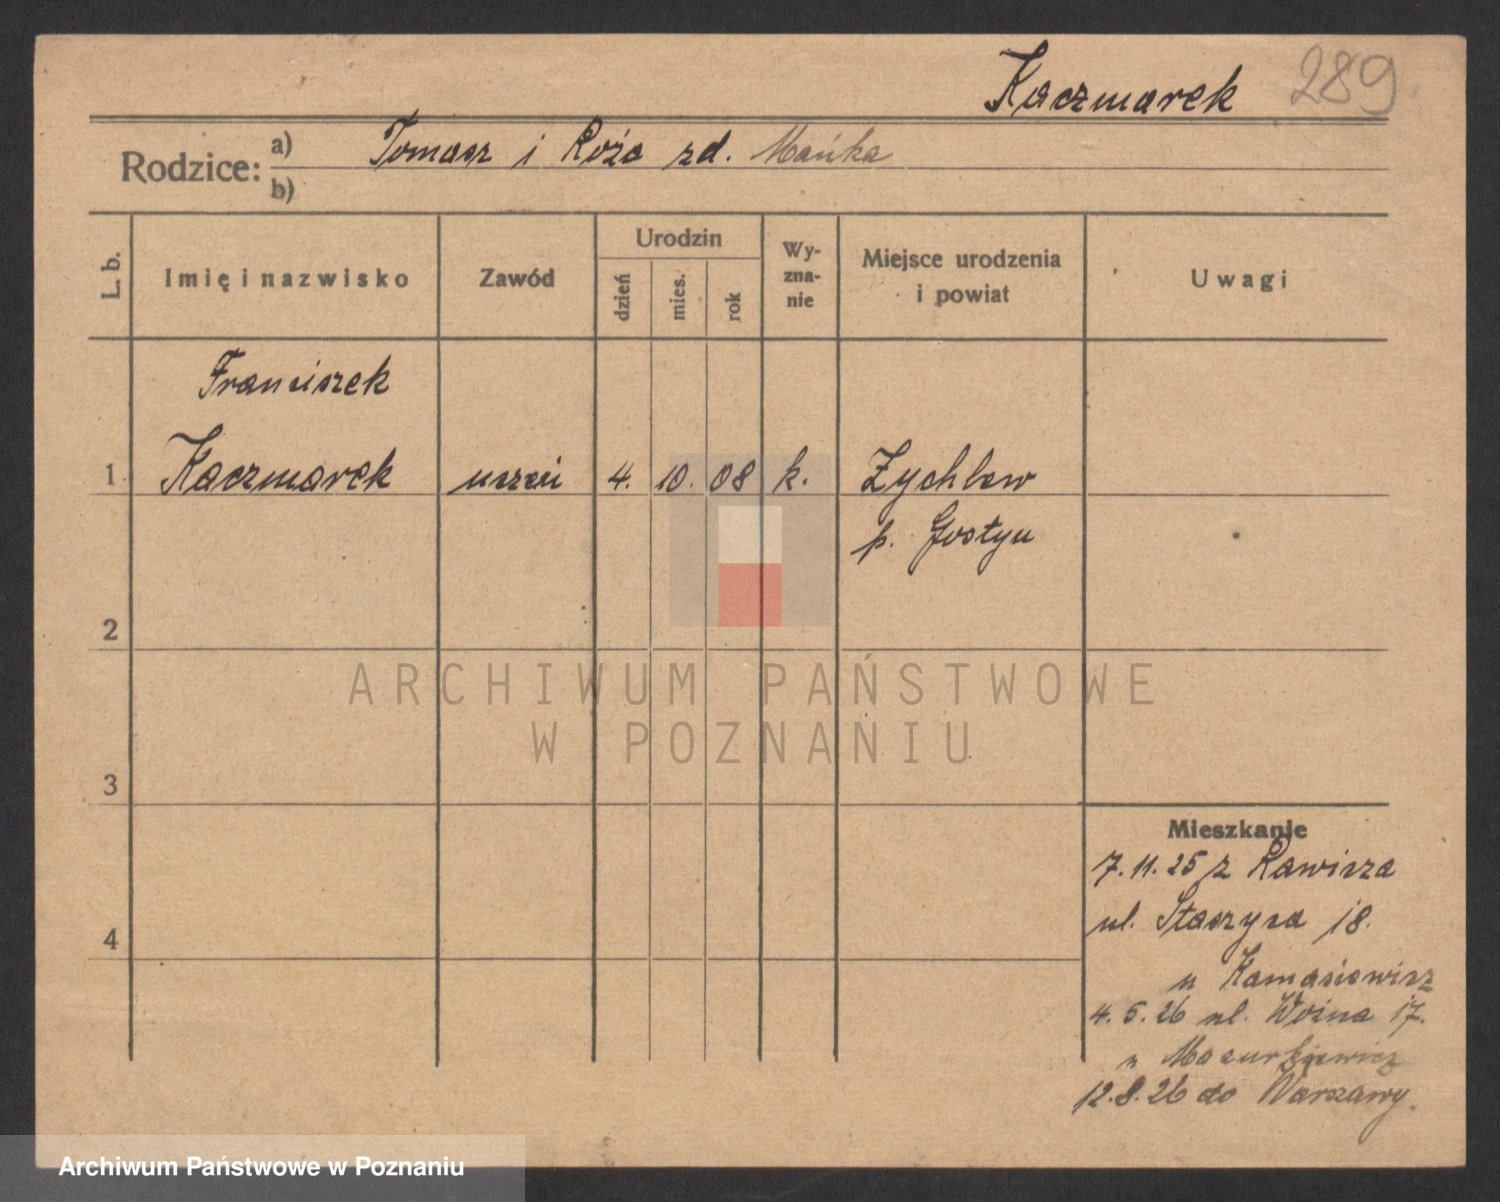 Kaczmarek 289
Rodzice: a) Tomasz i Róża zd. Mańka
b)
L. b.
Imię i nazwisko
Zawód
Urodzin
dzień
mies.
rok
Wy-
zna-
nie
Miejsce urodzenia
i powiat
Uwagi
Franciszek
1 Kaczmarek uczeń 4. 10. 08 k. Żychlew
p. Gostyń
2
3
4
Mieszkanie
7.11.25 z Rawicza
ul. Staszyca 18.
u
4.5.26 ul. 17.
u Mazurkiewicz
12.8.26 do Warszawy.
ARCHIWUM PAŃSTWOWE
W POZNANIU
Archiwum Państwowe w Poznaniu